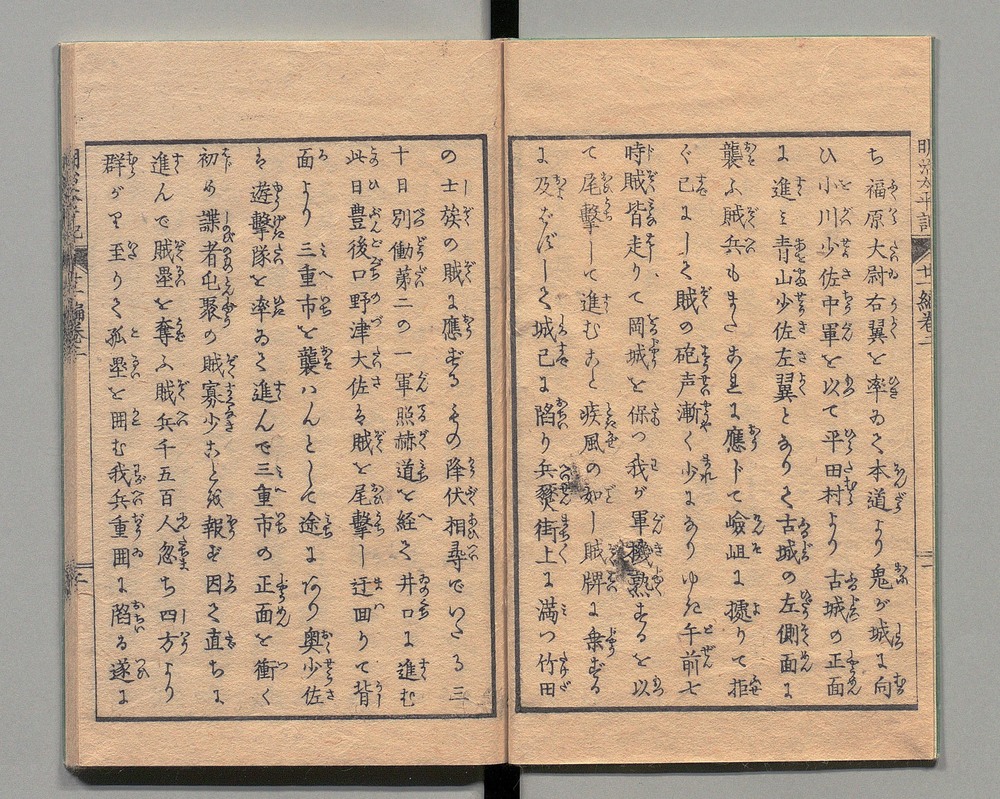 明治太平記 廿二編巻二 二
ち福原大尉右翼を率ゐて本道より鬼が城に向
ひ小川少佐中軍を以て平田村より古城の正面
に進み青山少佐左翼となりて古城の左側面に
襲ふ賊兵もまたこれに應じて嶮岨に據りて拒
ぐ已にして賊の砲声漸く少になりゆき午前七
時賊皆走りて岡城を保つ我が軍機熟するを以
て尾撃して進むこと疾風の如し賊牌に乗ずる
に及ばずして城已に陷り兵燹街上に満つ竹田
の士族の賊に應ずるもの降伏相尋でいたる三
十日別働第二の一軍照赫道を経て井口に進む
此日豊後口野津大佐る賊を尾撃し迂回りて背
面より三重市を襲ハんとして途になり奥少佐
は遊撃隊を率ゐて進んで三重市の正面を衝く
初め諜者屯聚の賊寡少なるを報ず因て直ちに
進んで賊壘を奪ふ賊兵千五百人忽ち四方より
群がり至りて孤壘を囲む我兵重囲に陷る遂に